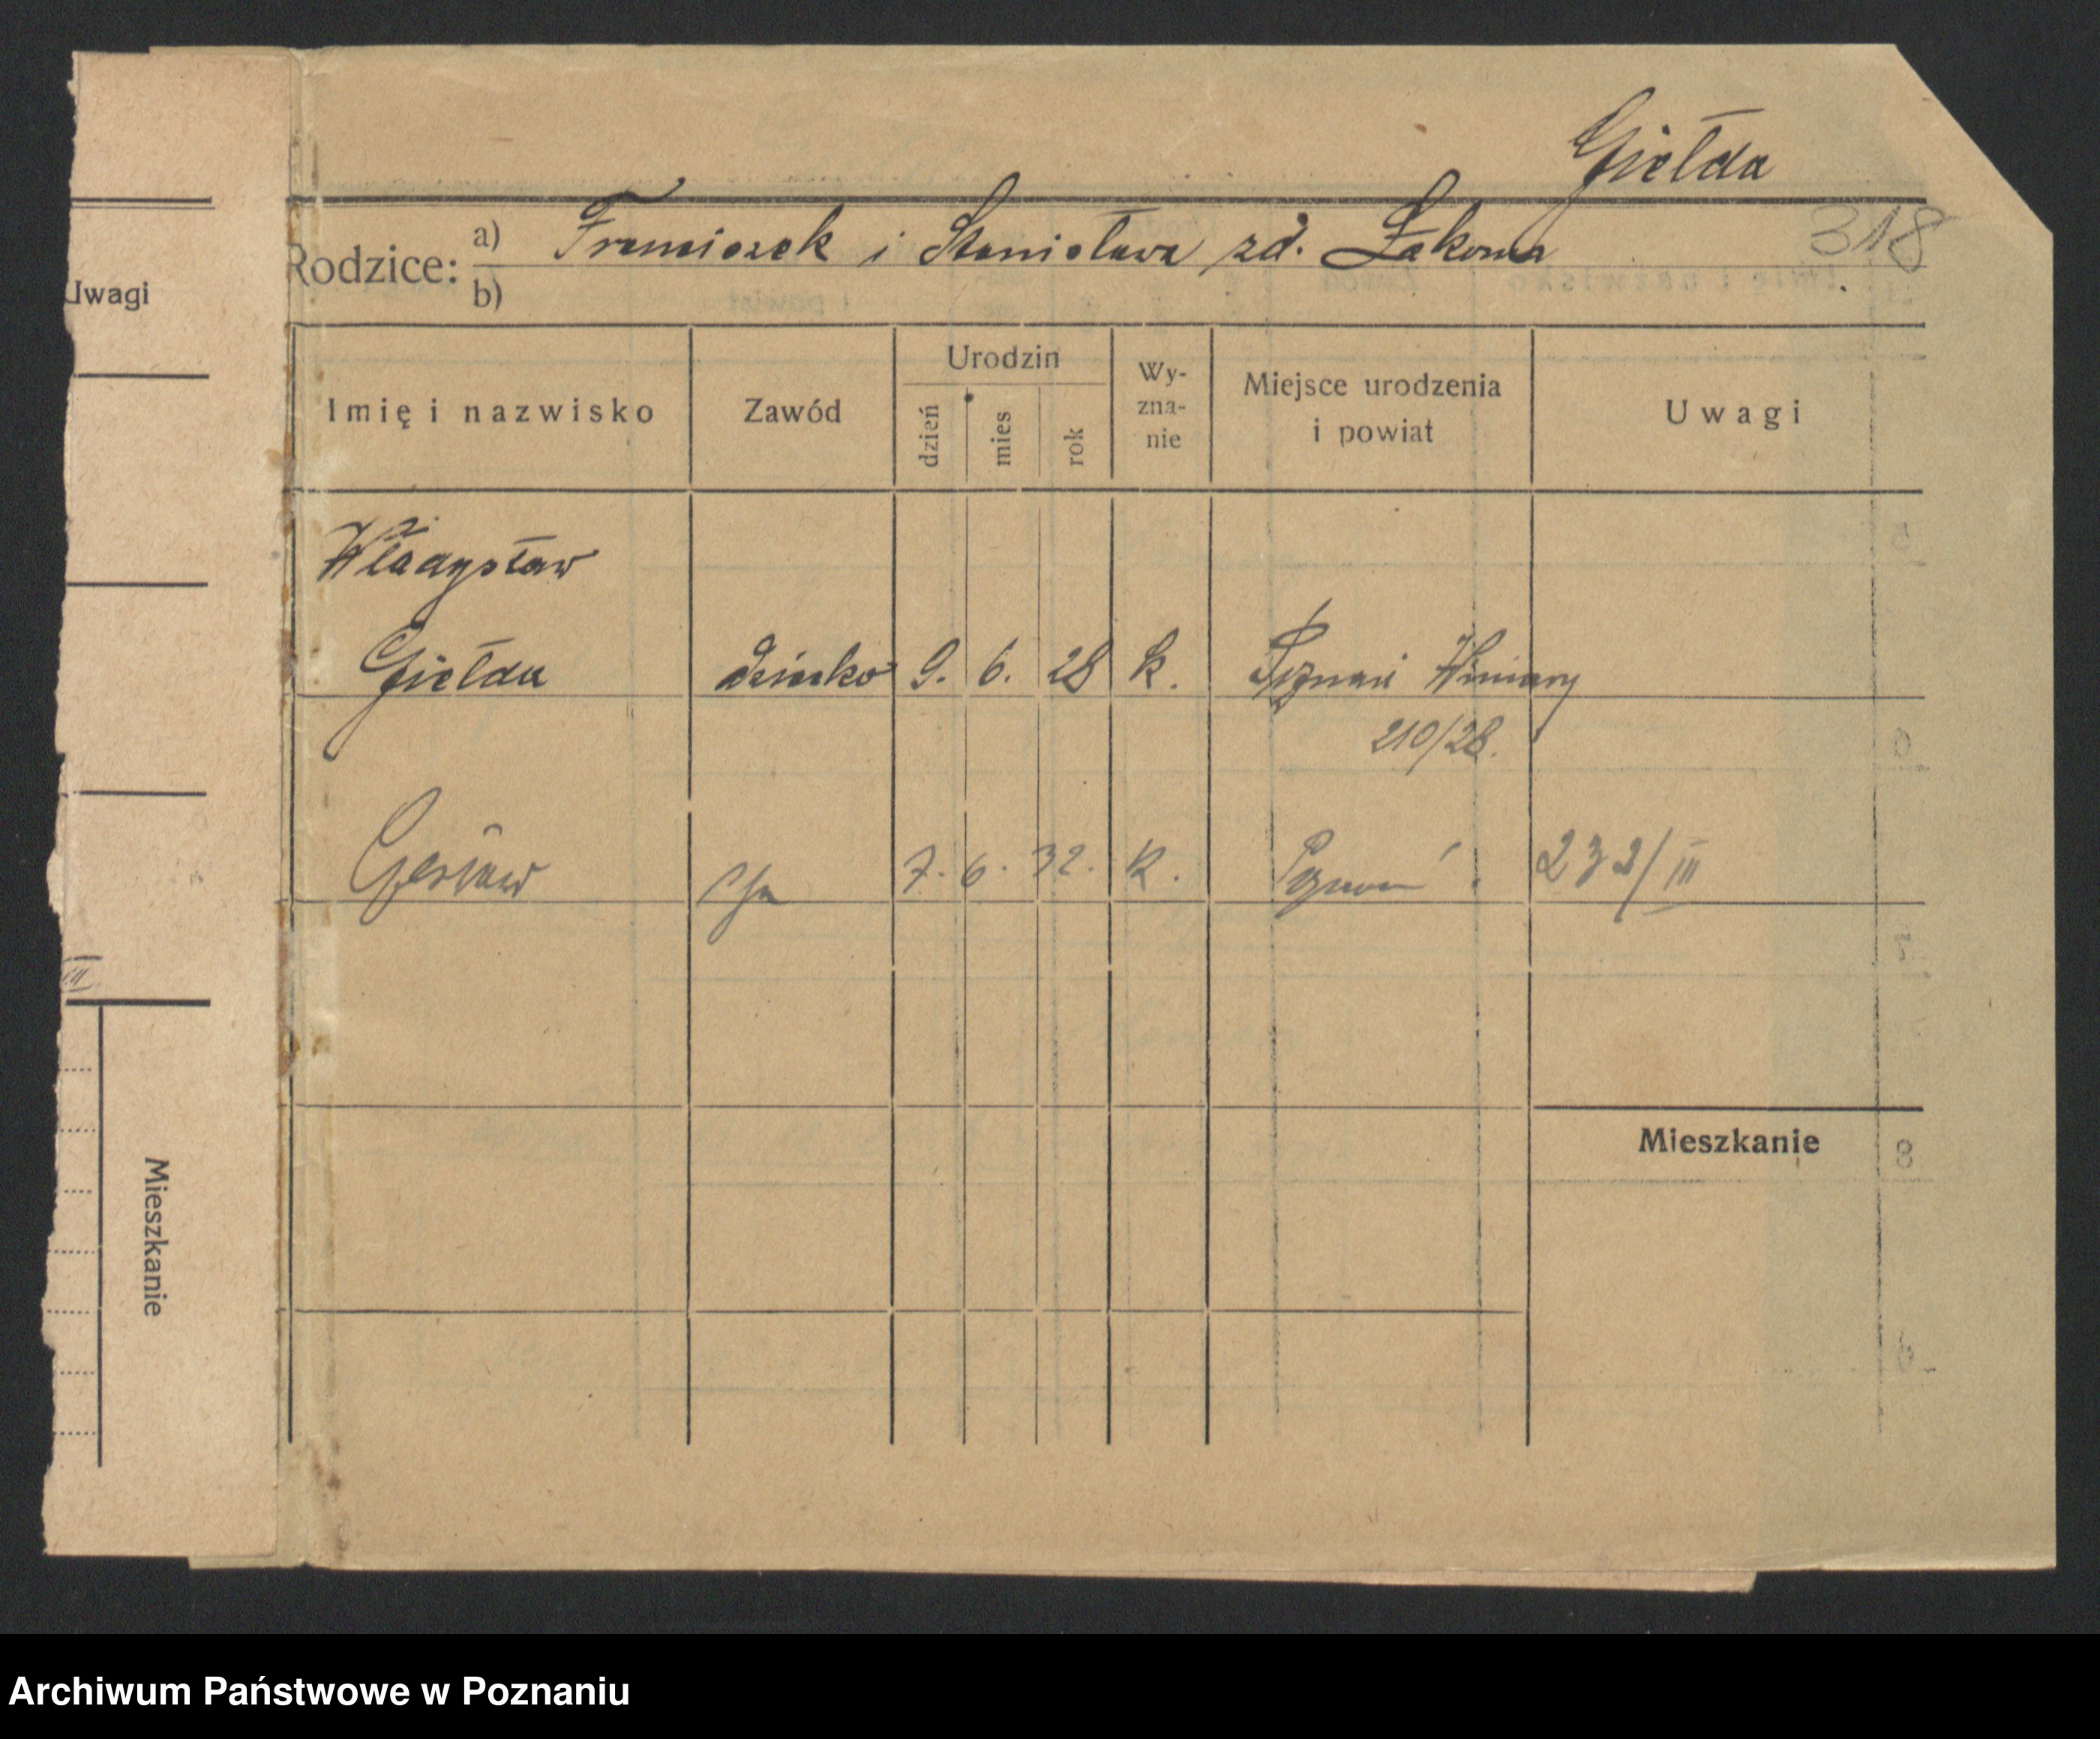 Giełda
318
Rodzice: a) Franciszek i Stanisława zd. Łakoma
b)
Uwagi
Imię i nazwisko
Zawód
Urodzin
dzień
mies
rok
Wy-
zna-
nie
Miejsce urodzenia
i powiat
Uwagi
Władysław
Giełda dziecko 9. 6. 28 k. Poznań Winiary
210/28.
Czesław 7. 6. 32. k. Poznań 232/III
III
Mieszkanie
Mieszkanie
Archiwum Państwowe w Poznaniu